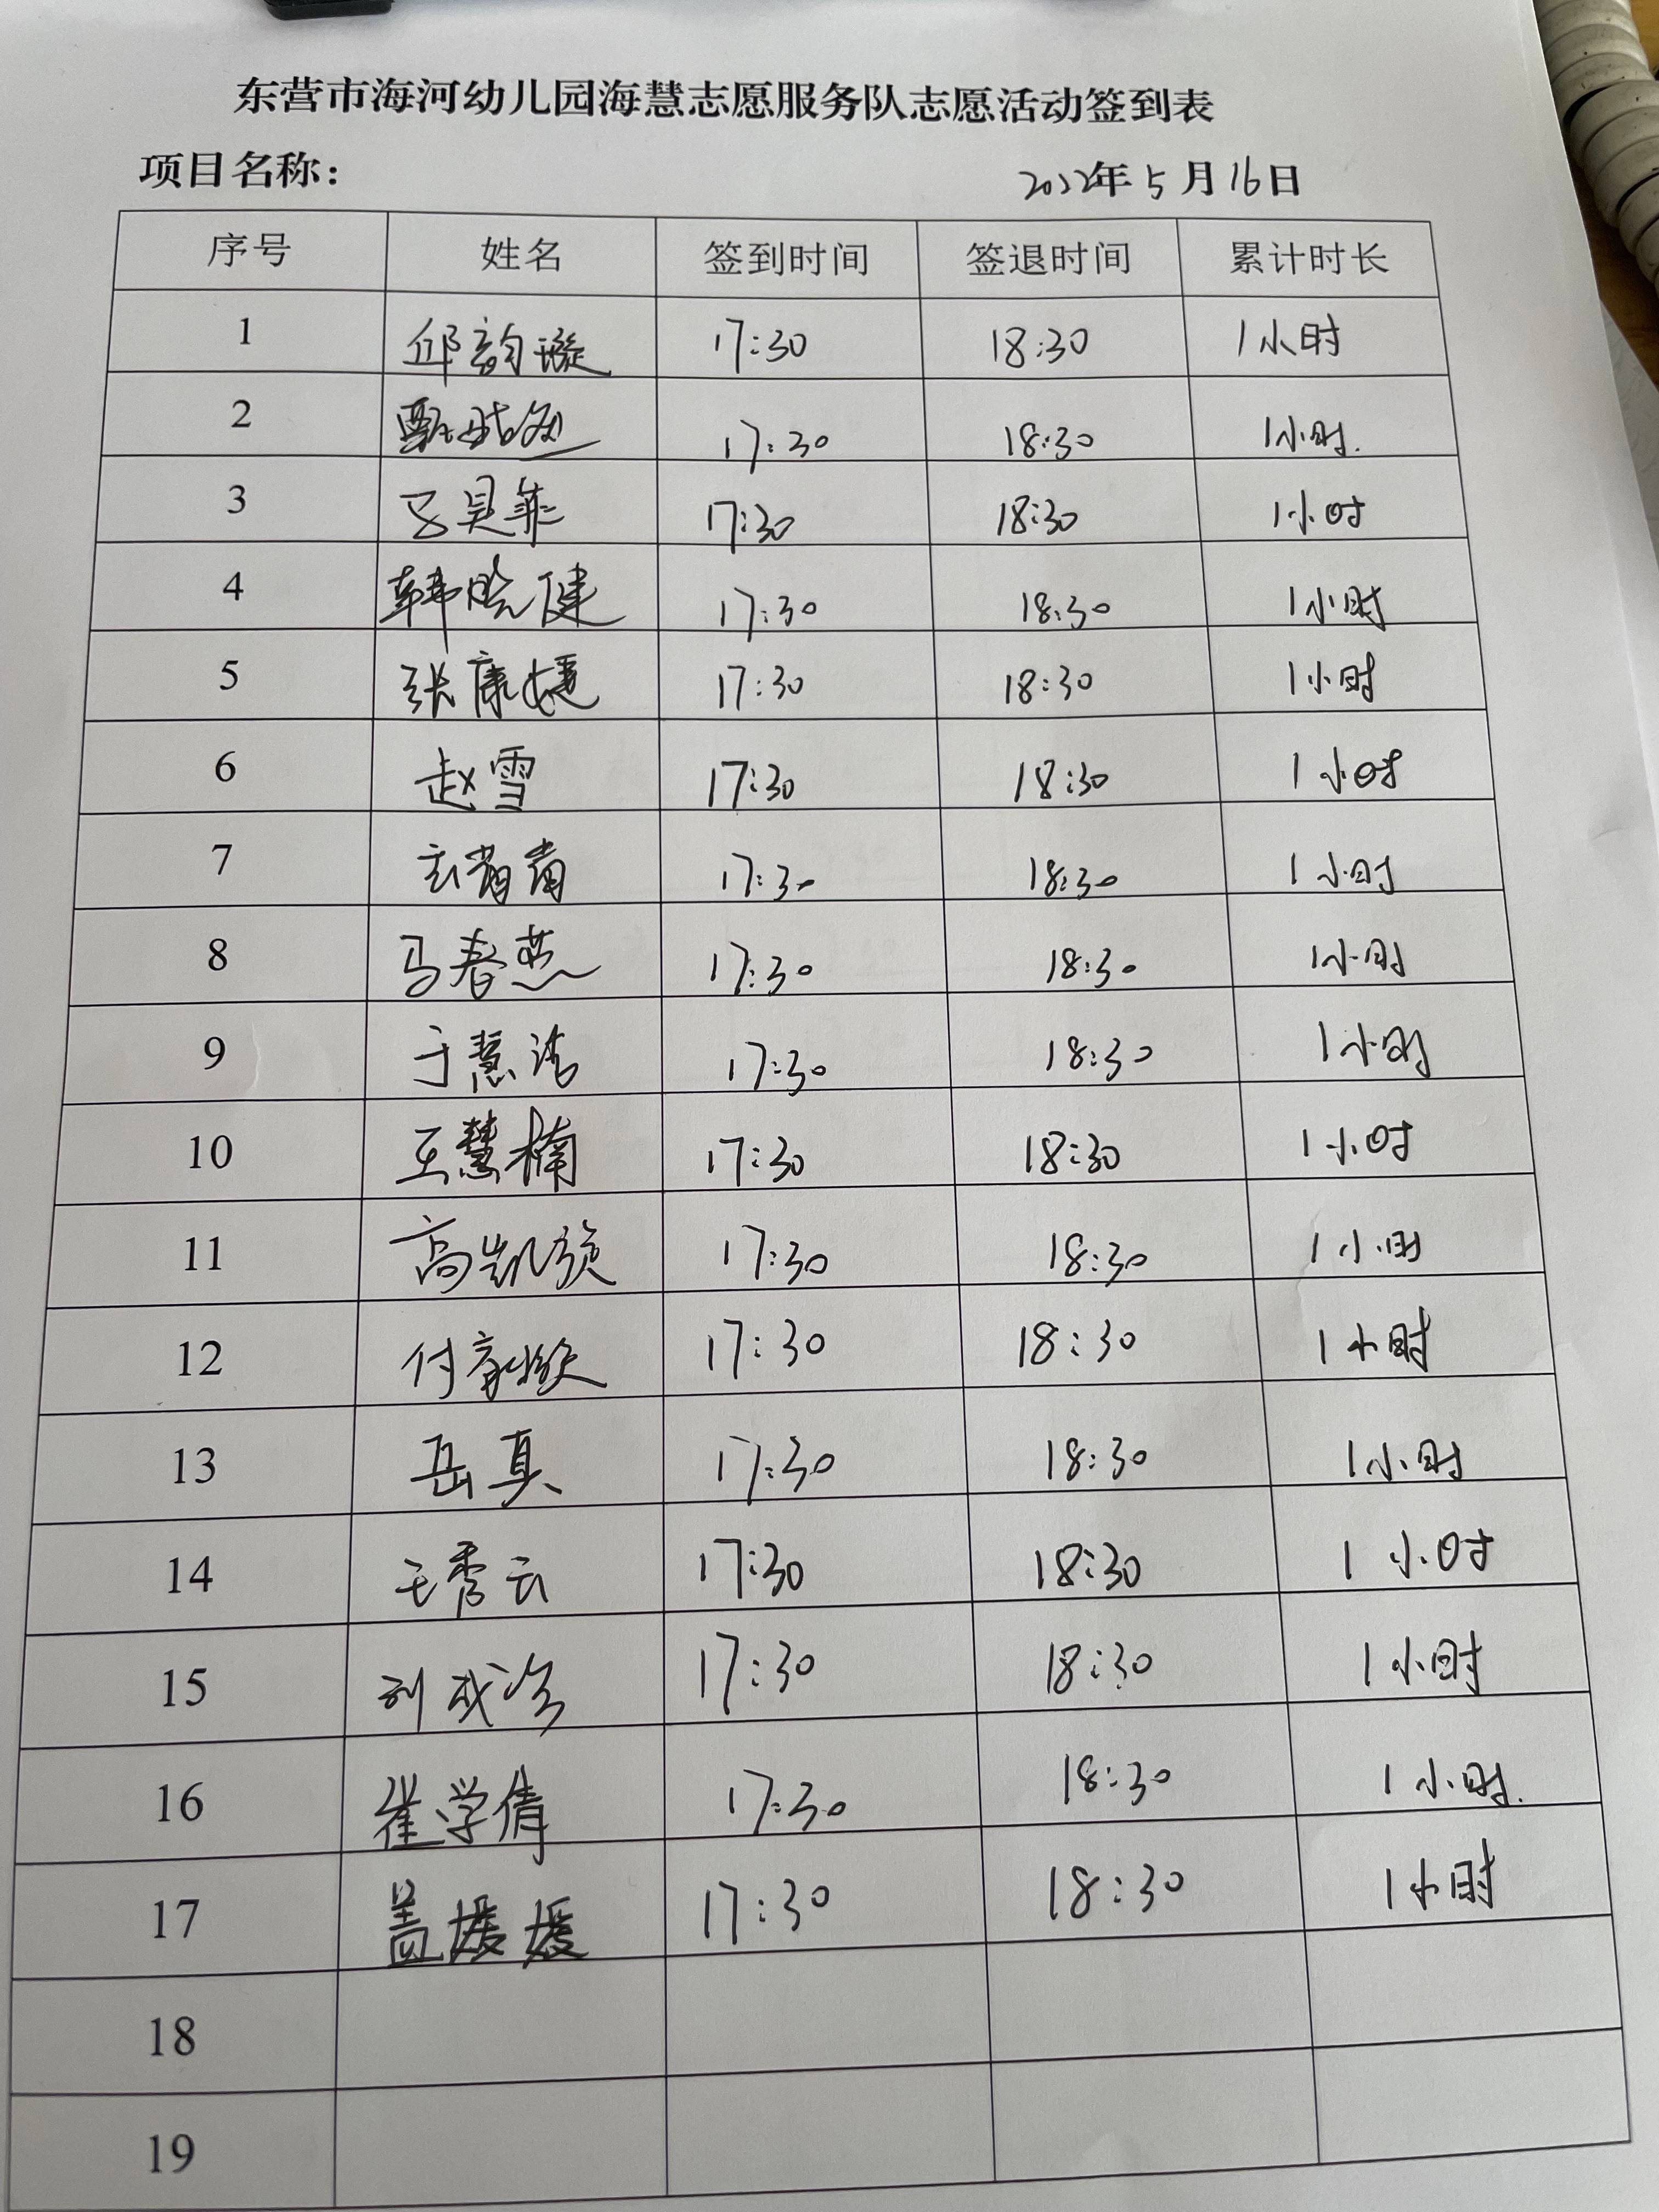 东营市海河幼儿园海慧志愿服务队志愿活动签到表
项目名称: 2022年5月16日
序号 姓名 签到时间 签退时间 累计时长
1 邱韵璇 17:30 18:30 1小时
2 17:30 18:30 1小时.
3 马贝菲 17:30 18:30 1小时
4 韩晓健 17:30 18:30 1小时
5 张康婕 17:30 18:30 1小时
6 赵雪 17:30 18:30 1小时
7 17:30 18:30 1小时
8 马春燕 17:30 18:30 1小时
9 于慧洁 17:30 18:30 1小时
10 王慧楠 17:30 18:30 1小时
11 高凯旋 17:30 18:30 1小时
12 17:30 18:30 1小时
13 岳真 17:30 18:30 1小时
14 王秀云 17:30 18:30 1小时
15 17:30 18:30 1小时
16 崔学倩 17:30 18:30 1小时.
17 盖媛媛 17:30 18:30 1小时
18
19